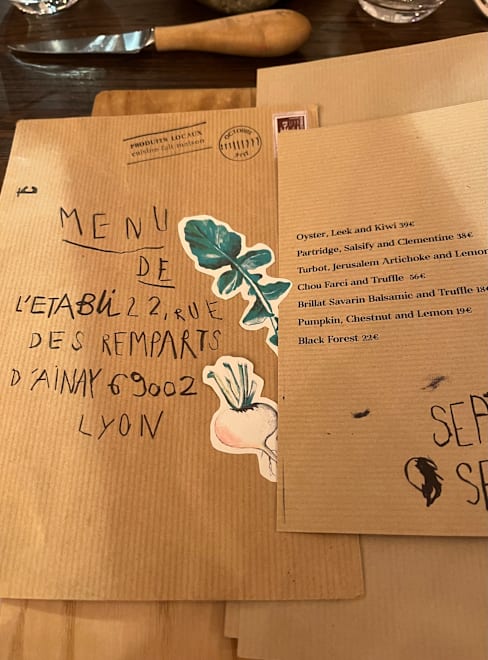 PRODUITS LOCAUX
cuisine fait maison
OCTOBRE
MENU
DE
L'ETABLI 22, RUE
DES REMPARTS
D'AINAY 69002
LYON
Oyster, Leek and Kiwi 39€
Partridge, Salsify and Clementine 38€
Turbot, Jerusalem Artichoke and Lemon
Chou Farci and Truffle 56€
Brillat Savarin Balsamic and Truffle 18€
Pumpkin, Chestnut and Lemon 19€
Black Forest 22€
SEP
SE